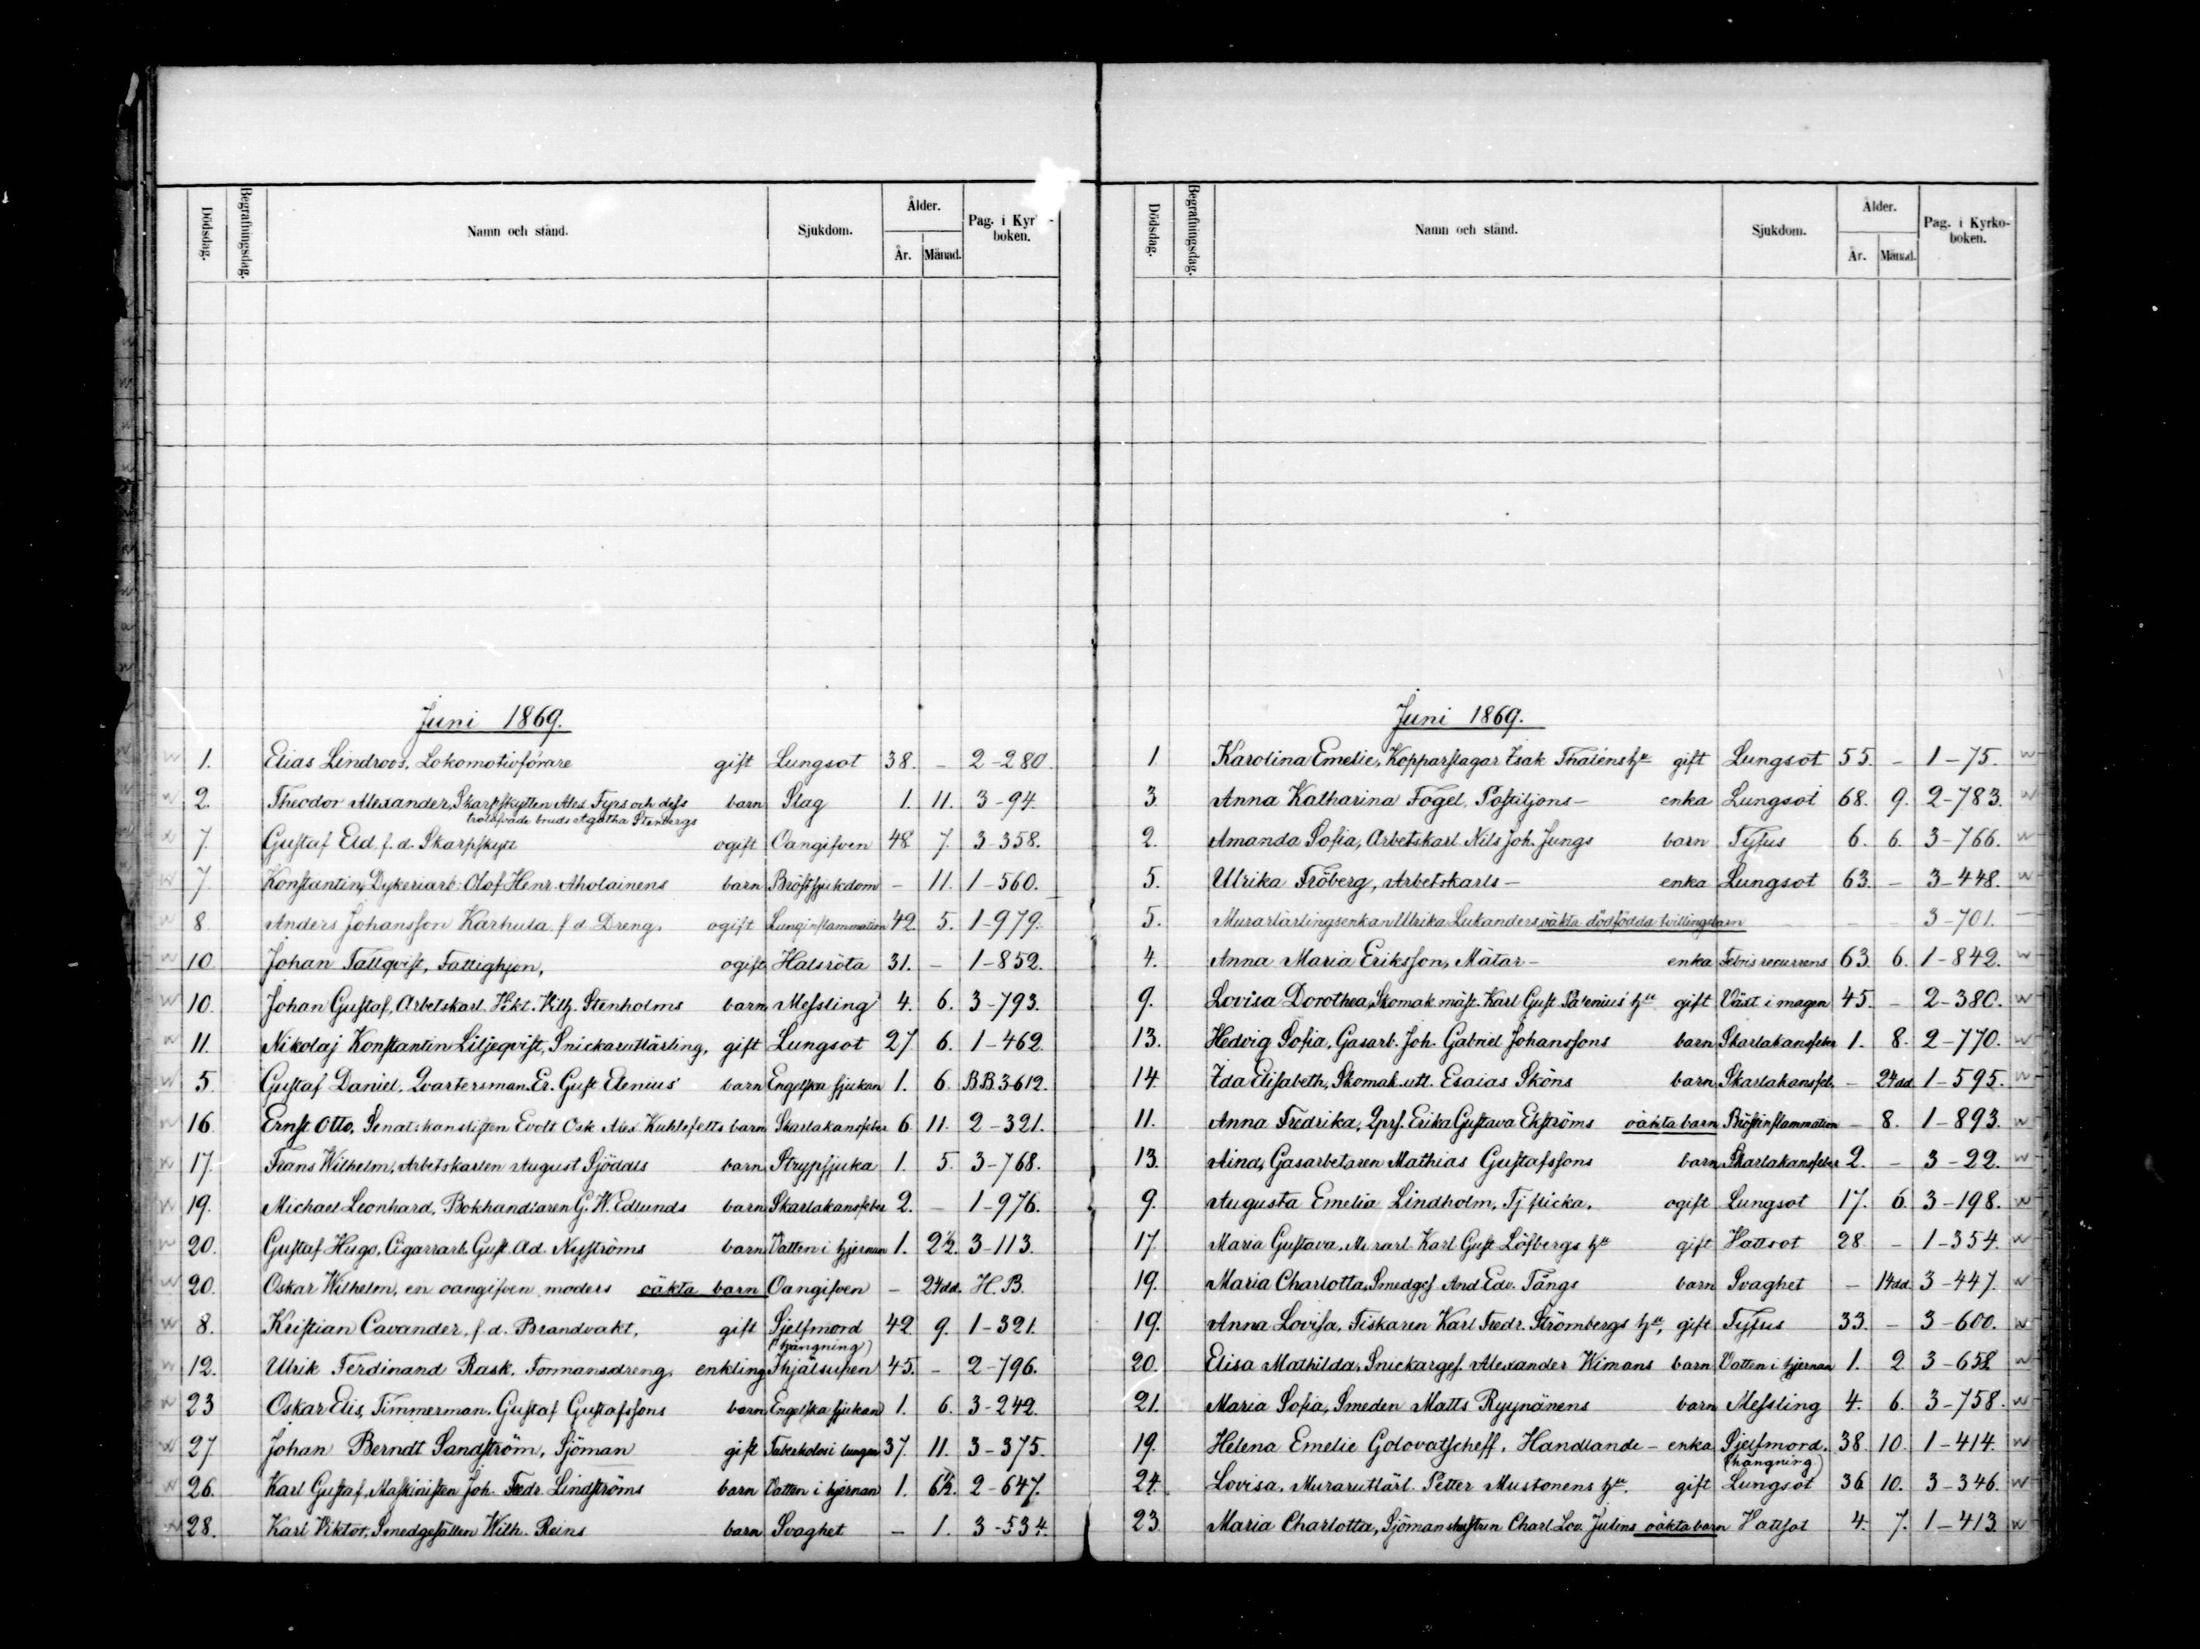 Dödsdag. Begrafningsdag. Namn och stånd. Sjukdom. Ålder. År. Månad. Pag. i Kyrko-boken.
Juni 1869.
1. Elias Lindroos, Lokomotivförare gift Lungsot 38. – 2-280.
2. Theodor Alexander, Skarpskytten Alex. Fyrs och dess barn Slag 1. 11. 3-94.
trolofvade bruds Agatha Stenbergs
7. Gustaf Eld f. d. Skarpskytt ogift Oangifven 48 7. 3-358.
7 Konstantin, Dykeriarb: Olof Henr. Aholainens barn Bröstsjukdom – 11. 1-560.
8 Anders Johansson Karhula f d Dreng. ogift Lunginflammation 42. 5. 1-979.
10 Johan Tallqvist, Fattighjon, ogift Halsröta 31. – 1-852.
10. Johan Gustaf, Arbetskarl. Vikt. Vilh. Stenholms barn Messling 4. 6. 3-793.
11. Nikolaj Konstantin Liljeqvist, Snickarutlärling, gift Lungsot 27 6. 1-462.
5. Gustaf Daniel, Qvartersman Er. Gust Elenius' barn Engelska sjukan 1. 6. B.B. 3612.
16 Ernst Otto, Senatskanslisten Evolt Osk Alex. Kuhlefelts barn Skarlakansfeber 6 11. 2-321.
17. Frans Wilhelm, Arbetskarlen August Sjödds barn Strypsjuka 1. 5. 3-768.
19. Michael Leonhard, Bokhandlaren G. W. Edlunds barn Skarlakansfeber 2. – 1-976.
20. Gustaf Hugo, Cigarrarb. Gust. Ad. Nyströms barn Vatten i hjernan 1. 2½. 3-113.
20. Oskar Wilhelm, en oangifven moders oäkta barn Oangifven – 24 dd. H.B.
8. Kristian Cavander, f. d. Brandvakt, gift Sjelfmord 42 9. 1-321.
(hängning)
12. Ulrik Ferdinand Rask, Formansdreng, enkling Ihjälsupen 45. – 2-796.
23 Oskar Elis, Timmerman. Gustaf Gustafssons barn Engelska sjukan 1. 6. 3-242.
27. Johan Berndt Sandström, Sjöman gift Tuberkulosi lungan 37. 11. 3-375.
26. Karl Gustaf, Maskinisten Joh. Fredr. Lindströms barn Vatten i hjernan 1. 6½. 2-647.
28. Karl Viktor, Smedgesällen Wilh. Reins barn Svaghet – 1. 3-534.
Dödsdag. Begrafningsdag. Namn och stånd. Sjukdom. Ålder. År. Månad. Pag. i Kyrko-boken.
Juni 1869.
1 Karolina Emelie, Kopparslagar Isak Thaléns hu gift Lungsot 55. – 1-75.
3. Anna Katharina Fogel, Postiljons- enka Lungsot 68. 9. 2-783.
2. Amanda Sofia, Arbetskarl. Nils Joh. Jungs barn Tyfus 6. 6. 3-766.
5. Ulrika Fröberg, Arbetskarls- enka Lungsot 63. – 3-448.
5. Murarlärlingsenkan Ulrika Lukanders oäkta dödfödda tvillingsbarn – – 3-701.
4. Anna Maria Eriksson, Mätar- enka Febris recurrens 63. 6. 1-842.
9. Lovisa Dorothea, Skomak. mäst. Karl Gust Palenius' hu gift Växt i magen 45. – 2-380.
13. Hedvig Sofia, Gasarb. Joh. Gabriel Johanssons barn Skarlakansfeber 1. 8. 2-770.
14 Ida Elisabeth, Skomak. utl. Esaias Sköns barn Skarlakansfeb. – 24 dd. 1-595.
11. Anna Fredrika, Qprs. Erika Gustava Ekströms oäkta barn Bröstinflammation – 8. 1-893.
13. Aina, Gasarbetaren Mathias Gustafssons barn Skarlakansfeber 2. – 3-22.
9. Augusta Emelia Lindholm, Tj flicka. ogift Lungsot 17. 6. 3-198.
17 Maria Gustava, Murarl. Karl Gust Löfbergs hu gift Hattsot 28 – 1-354.
19. Maria Charlotta, Smedges And Edv. Tångs barn Svaghet – 14 dd. 3-447.
19. Anna Lovisa, Fiskaren Karl Fredr. Strömbergs hu, gift Tyfus 33. – 3-600.
20. Elisa Mathilda, Snickarges. Alexander Wimans barn Vatten i hjernan 1. 2 3-658
21. Maria Sofia, Smeden Matts Ryynänens barn Messling 4. 6. 3-758.
19. Helena Emelie Golovatscheff, Handlande- enka Sjelfmord. 38. 10. 1-414.
(hängning)
24. Lovisa, Murarutlärl. Petter Mustonens hu. gift Lungsot 36 10. 3-346.
23. Maria Charlotta, Sjömanshustrun Charl. Lov. Julins oäkta barn Hattsot 4. 7. 1-413.